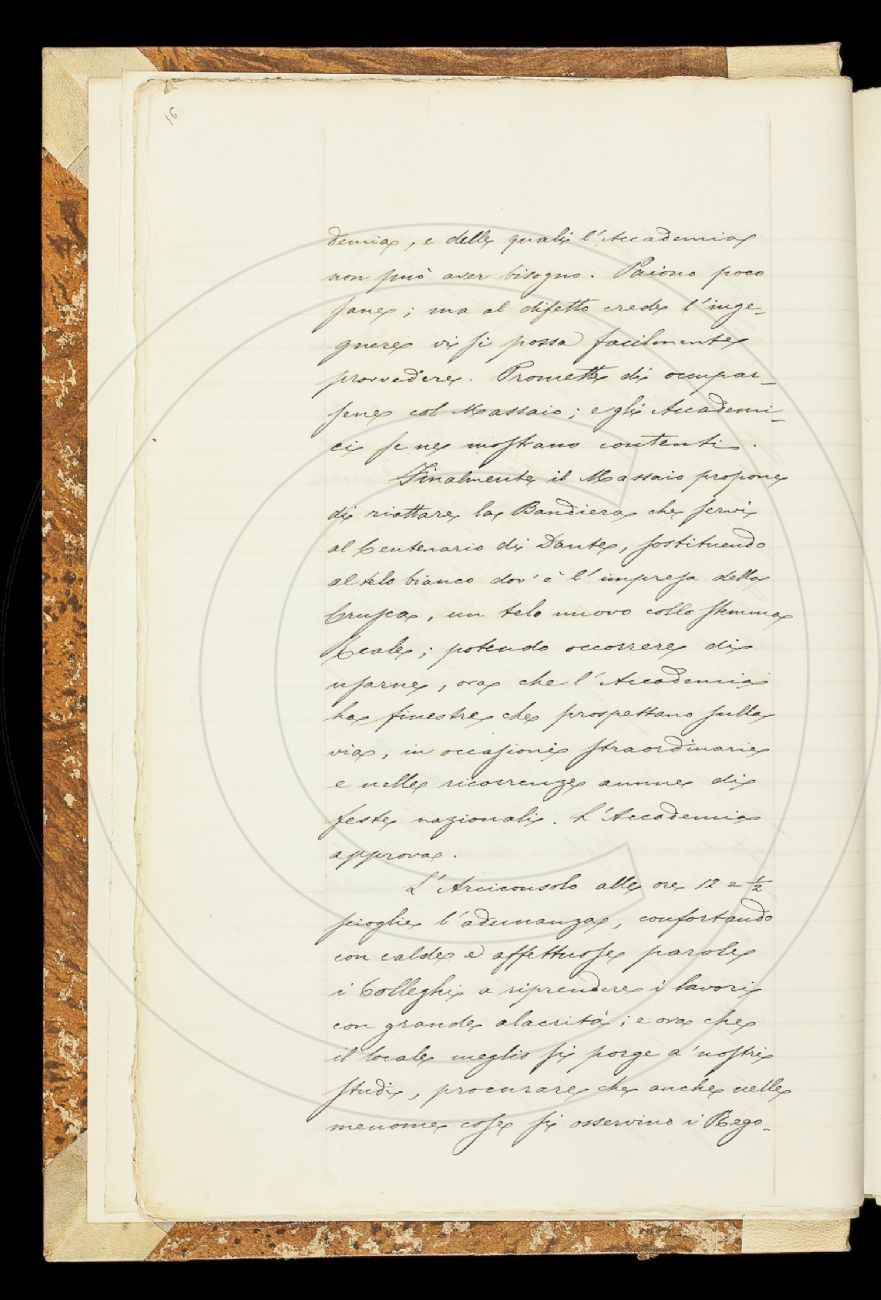 16
demia, e delle quali l'Accademia
non può aver bisogno. Paiono poco
sane; ma al difetto crede l'inge-
gnere vi si possa facilmente
provvedere. Promette di occupar-
sene col Massaio; e gli Accademi-
ci se ne mostrano contenti.
Finalmente il Massaio propone
di riattare la Bandiera che servì
al Centenario di Dante, sostituendo
al telo bianco dov'è l'impresa della
Crusca, un telo nuovo collo stemma
Reale; potendo occorrere di
usarne, ora che l'Accademia
ha finestre che prospettano sulla
via, in occasioni straordinarie
e nelle ricorrenze annue di
feste nazionali. L'Accademia
approva.
L'Arciconsolo alle ore 12 e ½
scioglie l'adunanza, confortando
con calde ed affettuose parole
i Colleghi a riprendere i lavori
con grande alacrità; e ora che
il locale meglio si porge a' nostri
studi, procurare che anche nelle
menome cose si osservino i Rego-